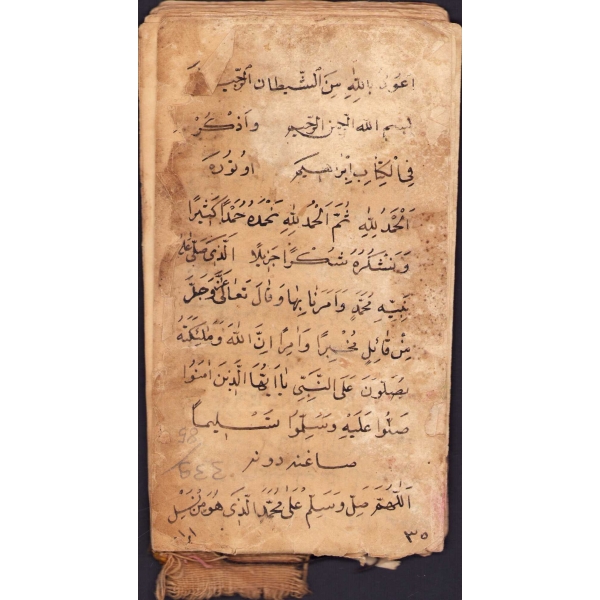 اعوذ بِاللّٰهِ مِنَ الشَّيطان الرَّجيم
بسم الله الرحمن الرحيم وَاذْكُرْ
فِي الْكِتَابِ اِبْرٰهيم اونوره
اَلْحَمْدُ لِلّٰهِ ثُمَّ الْحَمْدُ لِلّٰهِ نَحْمَدُهُ حَمْدًا كَثيرًا
وَنَشْكُرُهُ شُكْرًا جَزيلًا الَّذى صَلّى عَلى
نَبِيِّهِ مُحَمَّدٍ وَاَمَرَنَا بِهَا وَقَالَ تَعَالى عَزَّ وَجَلَّ
مِنْ قَائِلٍ مُخْبِرًا وَاٰمِرًا اِنَّ اللهَ وَمَلٰئِكَتَهُ
يُصَلّونَ عَلَى النَّبِىِّ يَا اَيُّهَا الَّذينَ اٰمَنُوا
صَلُّوا عَلَيْهِ وَسَلِّمُوا تَسْليمًا
98
صاغنه دونه
اَللّٰهُمَّ صَلِّ وَسَلِّمْ عَلٰى مُحَمَّدٍ الَّذى هُوَ مِنْ نَسْلِ
٣٥